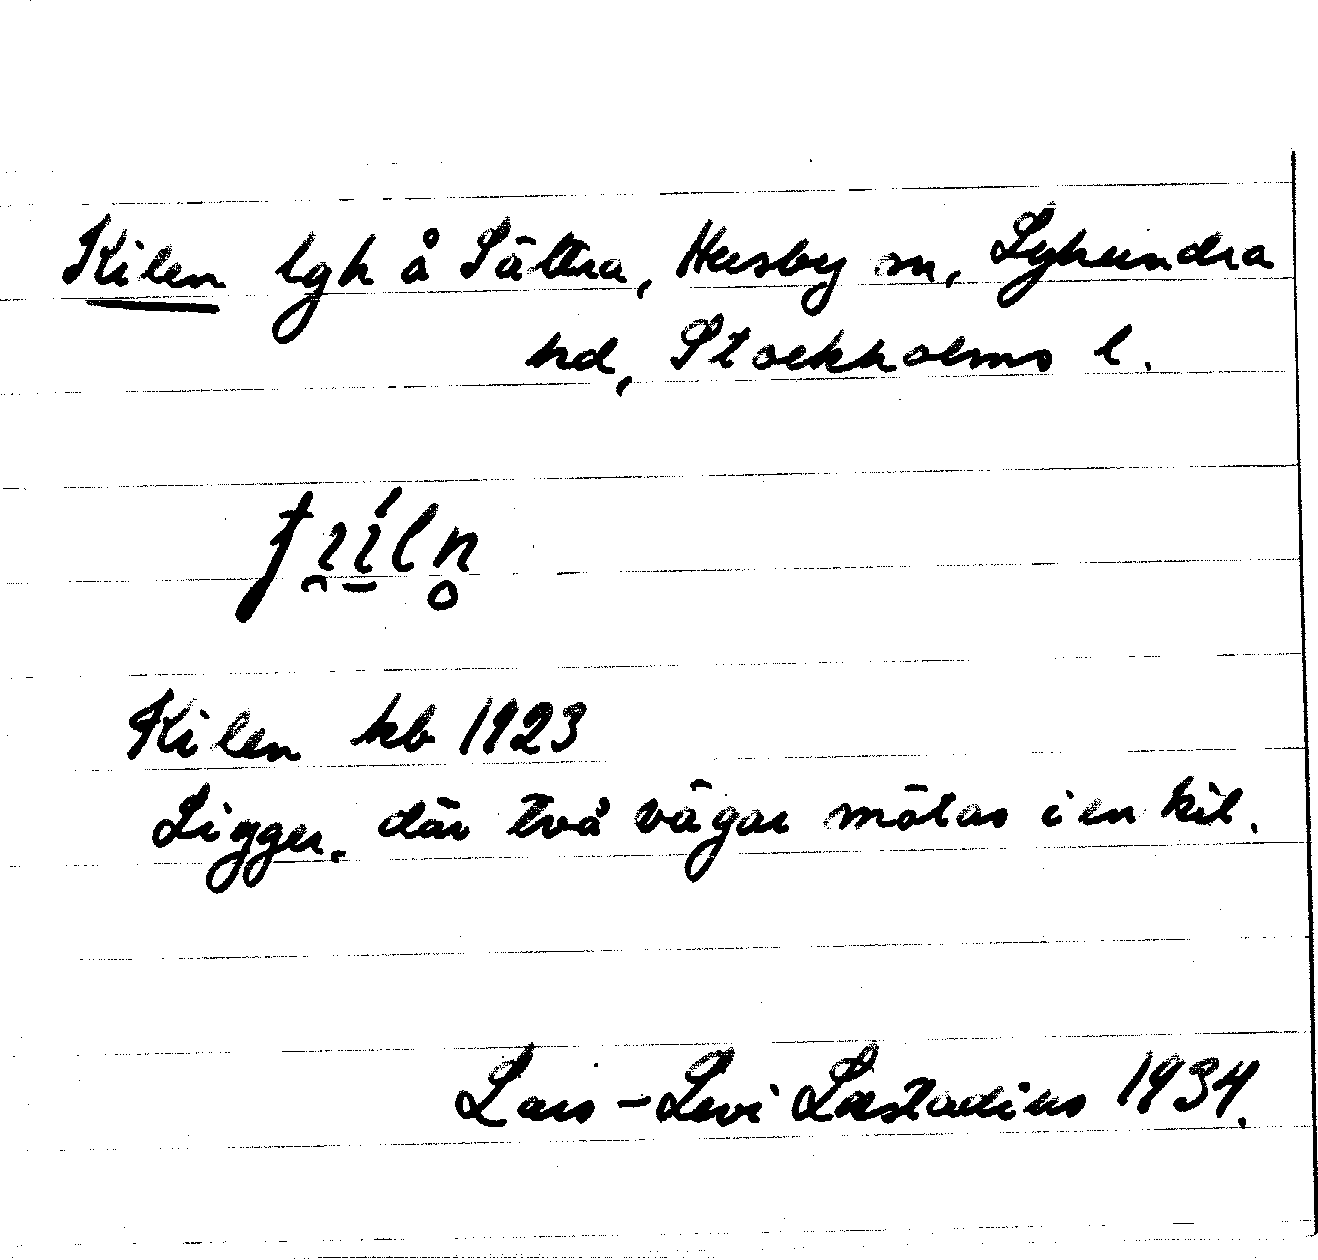 Kilen lgh å Sättra, Husby sn, Lyhundra
hd, Stockholms l.
Kilen kb 1923
Ligger, där två vägar mötas i en kil.
Lars-Levi Læstadius 1934.